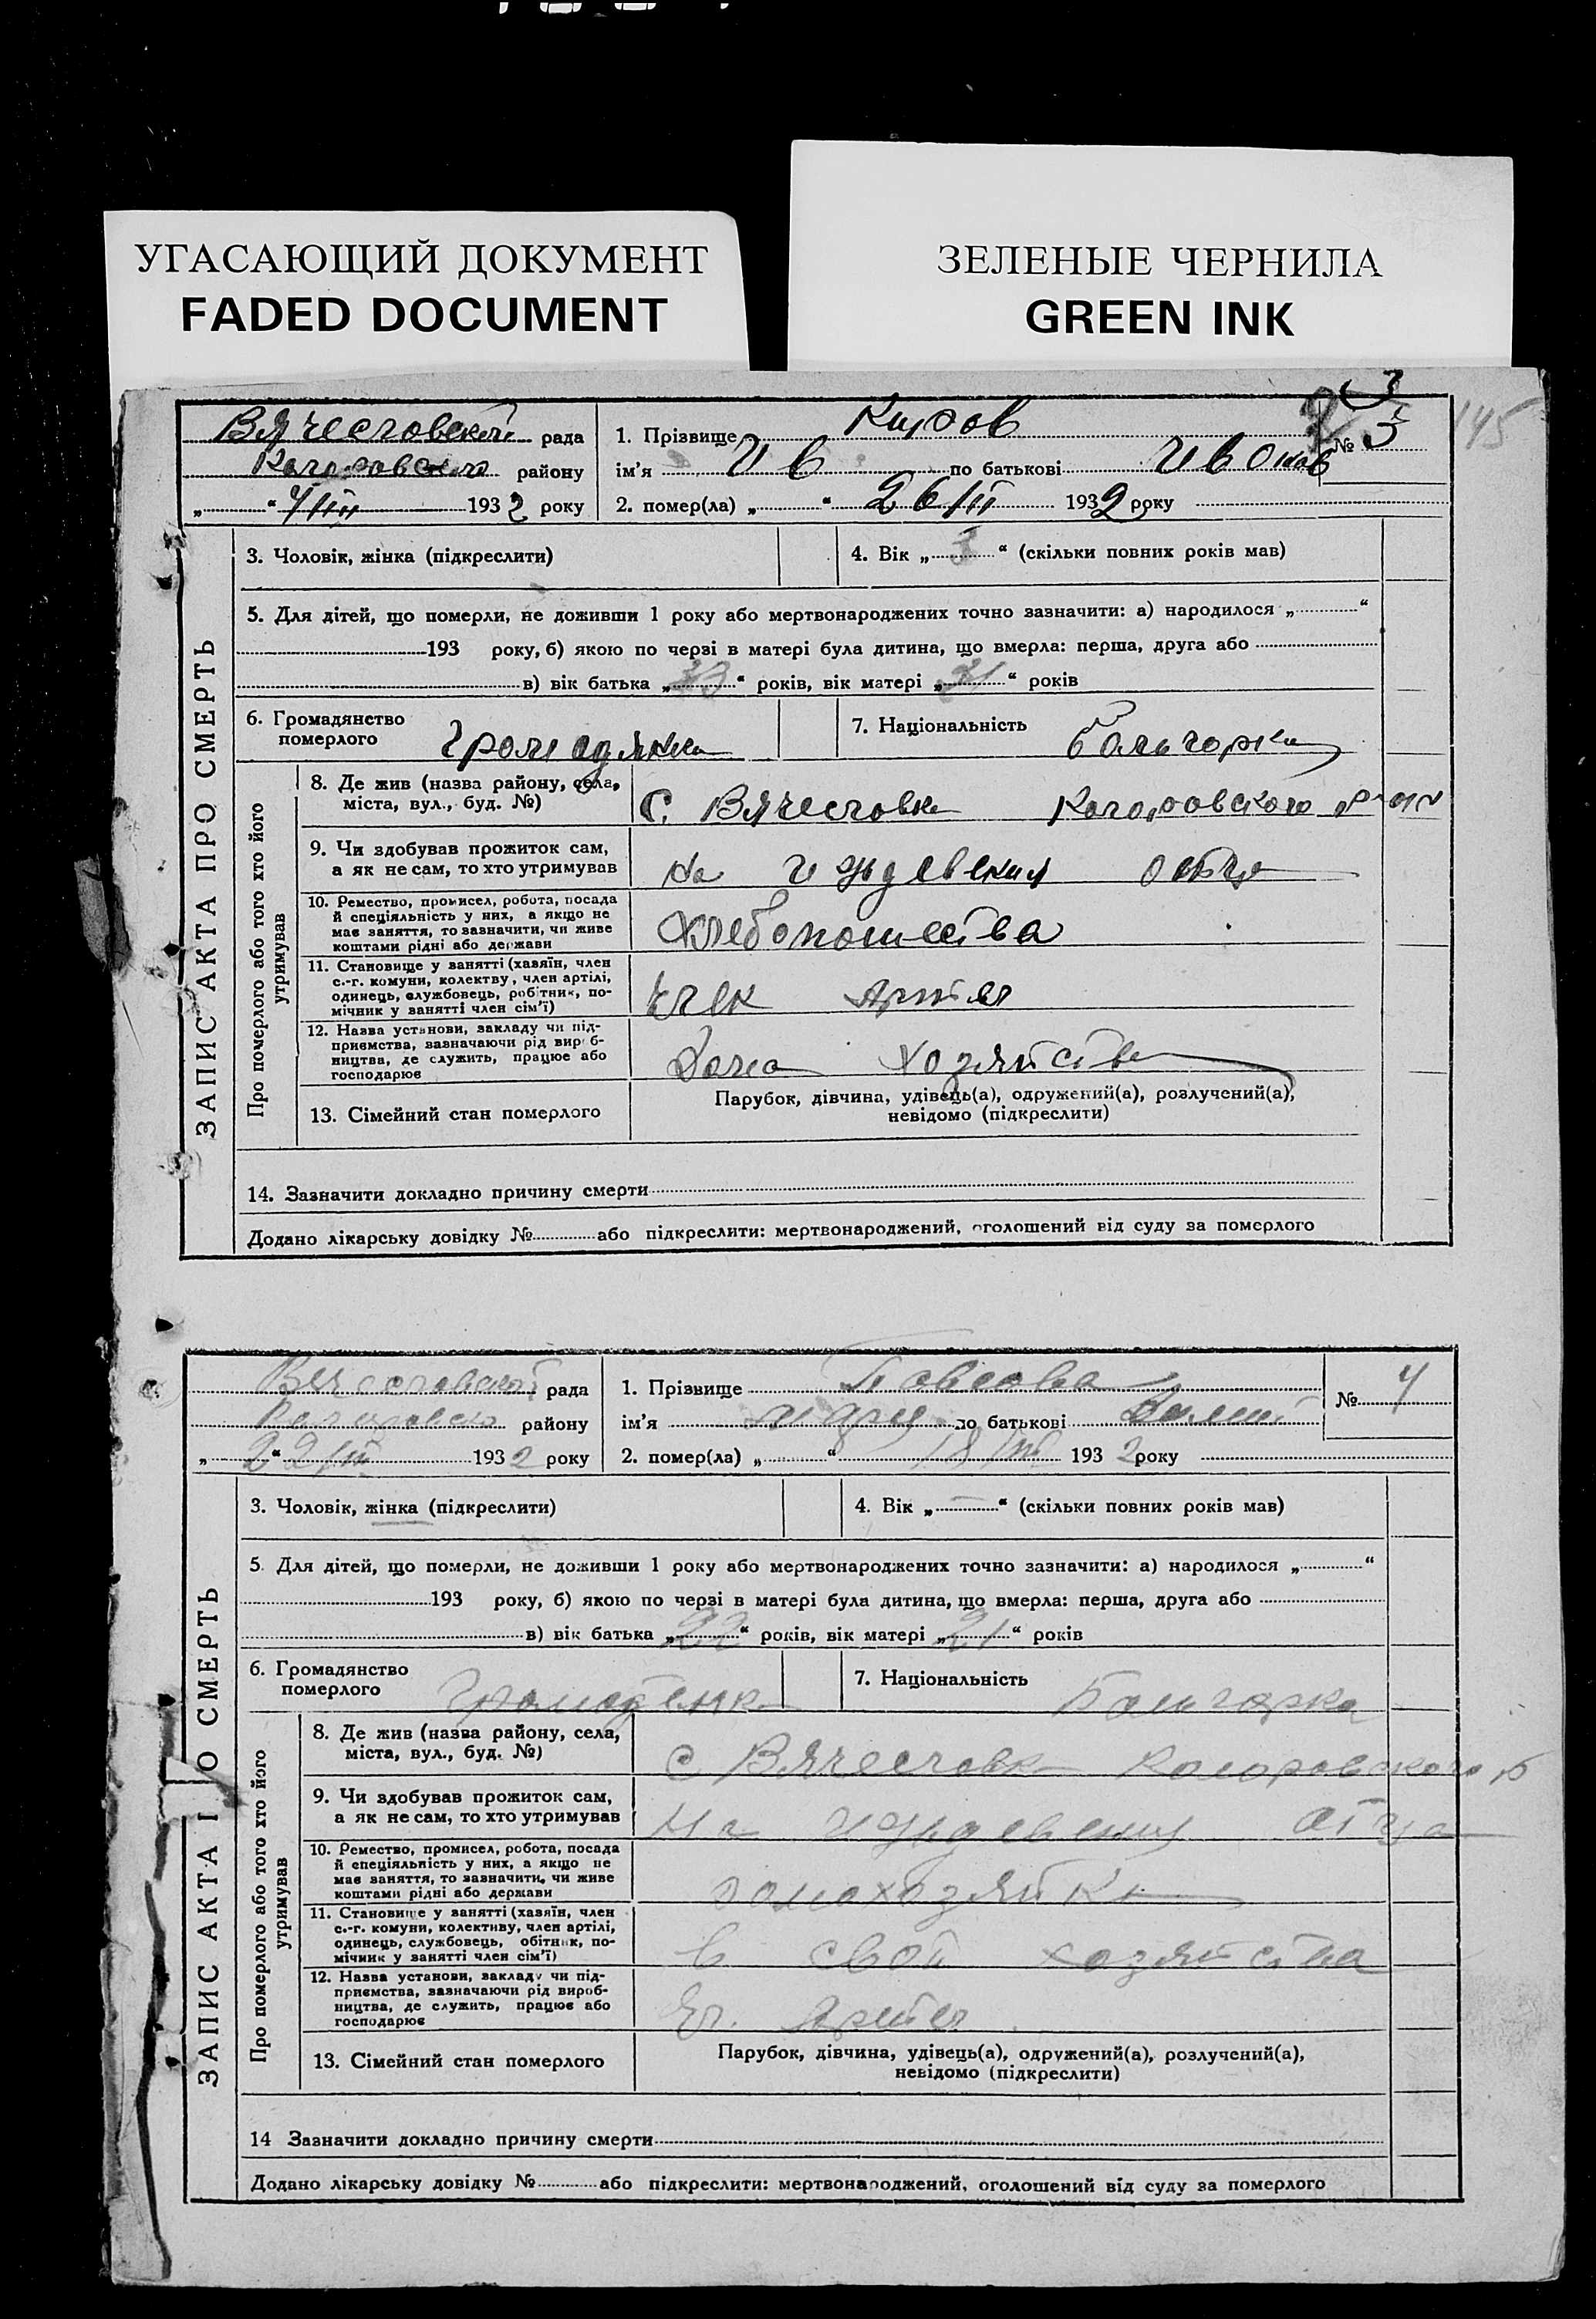 УГАСАЮЩИЙ ДОКУМЕНТ
FADED DOCUMENT
ЗЕЛЕНЫЕ ЧЕРНИЛА
GREEN INK
145
Вячесловской рада
району
193 2 року
1. Прізвище Киров
№ 3
ім'я Ив по батькові Иванов
2. помер(ла) „ “ 26/III 1932 року
ЗАПИС АКТА ПРО СМЕРТЬ
3. Чоловік, жінка (підкреслити)
4. Вік „ “ (скільки повних років мав)
5. Для дітей, що померли, не доживши 1 року або мертвонароджених точно зазначити: а) народилося „ “
193 року, б) якою по черзі в матері була дитина, що вмерла: перша, друга або
в) вік батька „ “ років, вік матері „ “ років
6. Громадянство
померлого
Громадянка
7. Національність
Больгорка
Про померлого або того хто його
утримував
8. Де жив (назва району, села,
міста, вул., буд. №)
С. Вячесловка
9. Чи здобував прожиток сам,
а як не сам, то хто утримував
На отца
10. Ремество, промисел, робота, посада
й спеціяльність у них, а якщо не
має заняття, то зазначити, чи живе
коштами рідні або держави
11. Становище у занятті (хазяїн, член
с.-г. комуни, колектву, член артілі,
одинець, службовець, робітник, по-
мічник у занятті член сім'ї)
12. Назва установи, закладу чи під-
приємства, зазначаючи рід вироб-
ництва, де служить, працює або
господарює
13. Сімейний стан померлого
Парубок, дівчина, удівець(а), одружений(а), розлучений(а),
невідомо (підкреслити)
14. Зазначити докладно причину смерти
Додано лікарську довідку № або підкреслити: мертвонароджений, оголошений від суду за померлого
Вячесловской рада
району
„22/III 193 2 року
1. Прізвище Павлова
№ 4
ім'я по батькові
2. помер(ла) „ “ 18/III 193 2 року
ЗАПИС АКТА О СМЕРТЬ
3. Чоловік, жінка (підкреслити)
4. Вік „ “ (скільки повних років мав)
5. Для дітей, що померли, не доживши 1 року або мертвонароджених точно зазначити: а) народилося „ “
193 року, б) якою по черзі в матері була дитина, що вмерла: перша, друга або
в) вік батька „22“ років, вік матері „21“ років
6. Громадянство
померлого
7. Національність
Болгорка
Про померлого або того хто його
утримував
8. Де жив (назва району, села,
міста, вул., буд. №)
С Вячесловка
9. Чи здобував прожиток сам,
а як не сам, то хто утримував
На отца
10. Ремество, промисел, робота, посада
й спеціяльність у них, а якщо не
має заняття, то зазначити, чи живе
коштами рідні або держави
домохозяйка
11. Становище у занятті (хазяїн, член
с.-г. комуни, колективу, член артілі,
одинець, службовець, обітник, по-
мічник у занятті член сім'ї)
в свой хозяйства
12. Назва установи, закладу чи під-
приємства, зазначаючи рід вироб-
ництва, де служить, працює або
господарює
13. Сімейний стан померлого
Парубок, дівчина, удівець(а), одружений(а), розлучений(а),
невідомо (підкреслити)
14 Зазначити докладно причину смерти
Додано лікарську довідку № або підкреслити: мертвонароджений, оголошений від суду за померлого